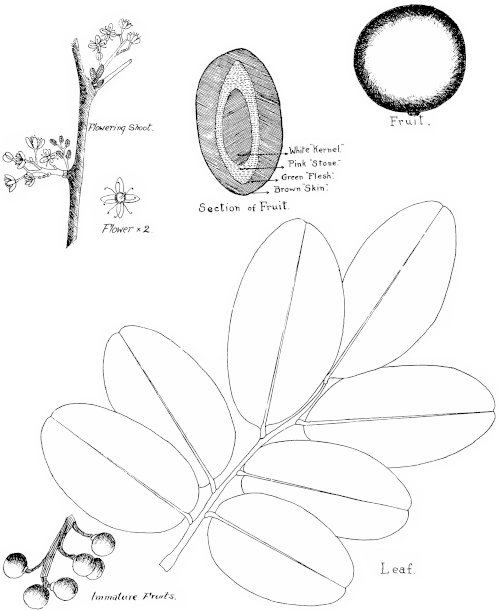 Flowering Shoot.
Flower × 2.
White "Kernel."
Pink "Stone."
Green "Flesh".
Brown "Skin".
Section of Fruit.
Fruit.
Leaf.
Immature Fruits.